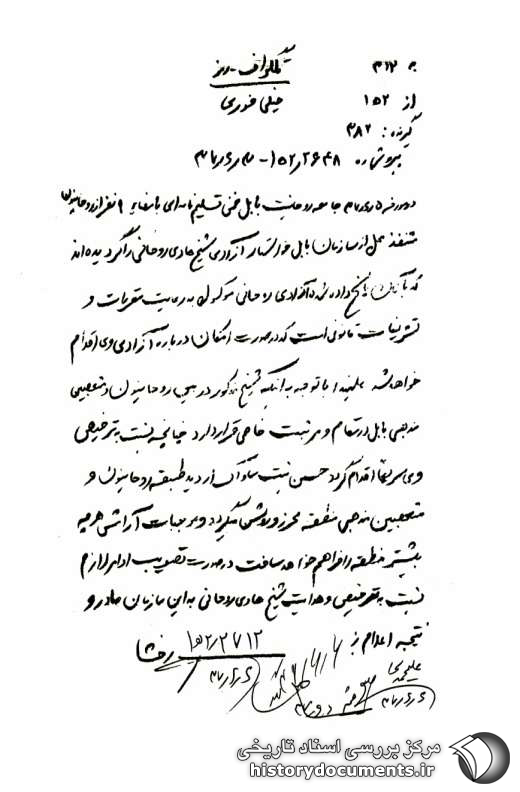 به ۳۱۲
تلگراف - رمز
از ۱۵۲
خیلی فوری
گیرنده : ۳۸۲
پیرو شماره ۱۵۲/۲۶۴۸
در مورخه جامعه روحانیت بابل ضمن تسلیم نامه‌ای با امضاء ۹ نفر از روحانیون
متنفذ محل از سازمان بابل خواستار آزادی شیخ هادی روحانی را گردیده‌اند
که به آنان پاسخ داده شده آزادی روحانی موکول به رعایت مقررات و
تشریفات قانونی است که در صورت امکان درباره آزادی وی اقدام
خواهد شد علیهذا با توجه به اینکه شیخ مذکور در بین روحانیون و متعصبین
مذهبی بابل در مقام و مرتبت خاصی قرار دارد چنانچه نسبت به ترخیص
وی سریعاً اقدام گردد حسن نیت ساواک از دید طبقه روحانیون و
متعصبین مذهبی منطقه محرز و روشن میگردد و موجبات آرامش هر چه
بیشتر منطقه را فراهم خواهد ساخت در صورت تصویب اوامر لازم
نسبت به ترخیص و هدایت شیخ هادی روحانی به این سازمان صادر و
نتیجه اعلام
۲۷۱۲
مرکز بررسی اسناد تاریخی
historydocuments.ir